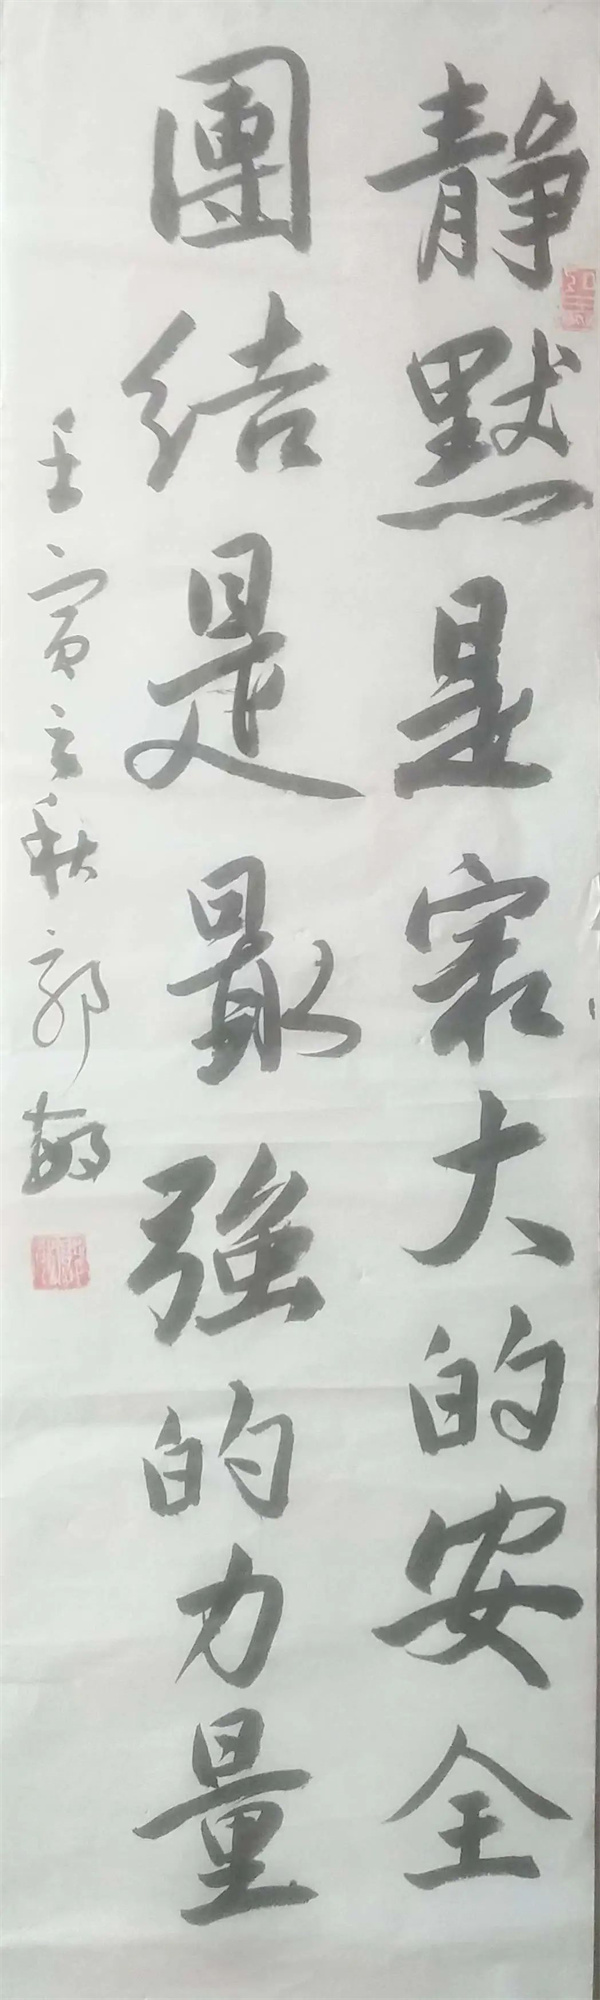 静默是冣大的安全
團结是最強的力量
壬寅之秋郭